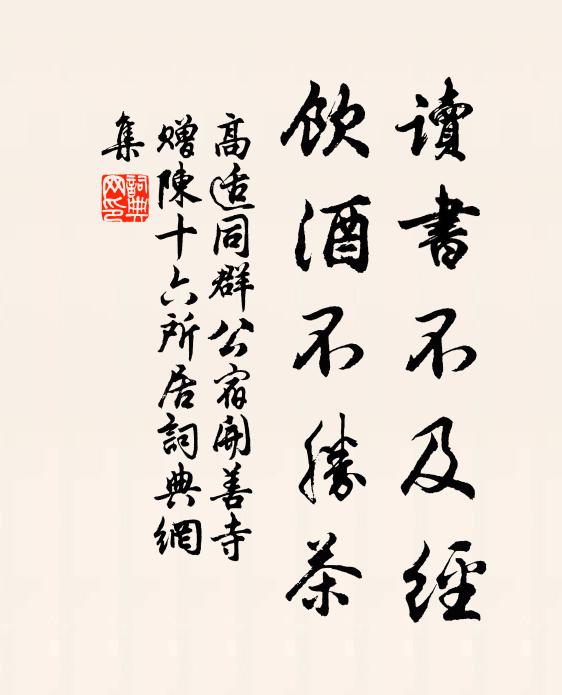 讀書不及經
飲酒不勝茶
高适同群公宿開善寺
贈陳十六所居詞典網
集
詞典
網印